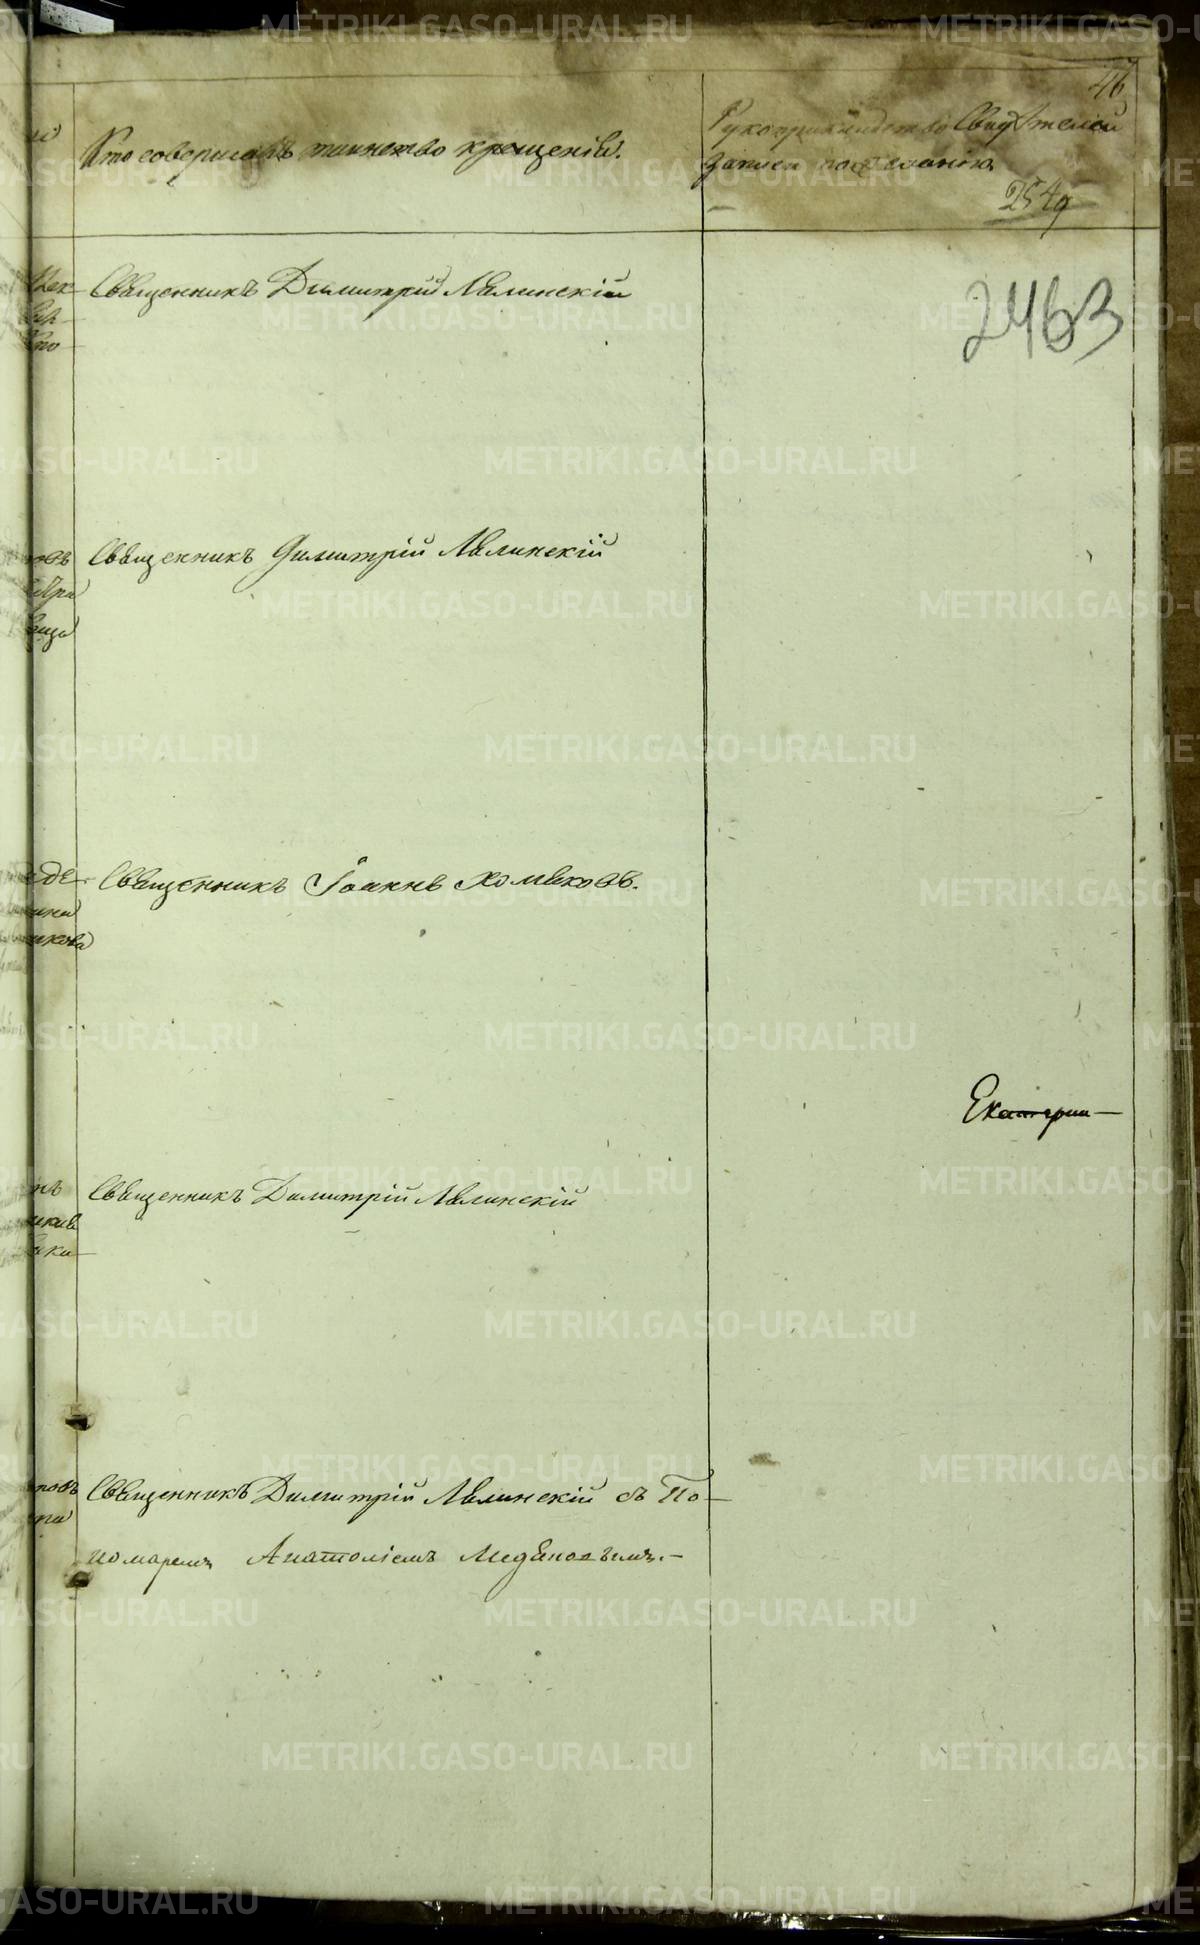 46
Кто совершалъ таинство крещенія.
Рукоприкладство Свидѣтелей
записи по желанію
254
2463
Священникъ Димитрій Явлинскій
Священникъ Димитрій Явлинскій
овъ
еде
Священникъ Іоаннъ Хомяковъ.
никова
Екатерин—
Священникъ Димитрій Явлинскій
Священникъ Димитрій Явлинскій съ По-
номаремъ Анатоліемъ
METRIKI.GASO-URAL.RU